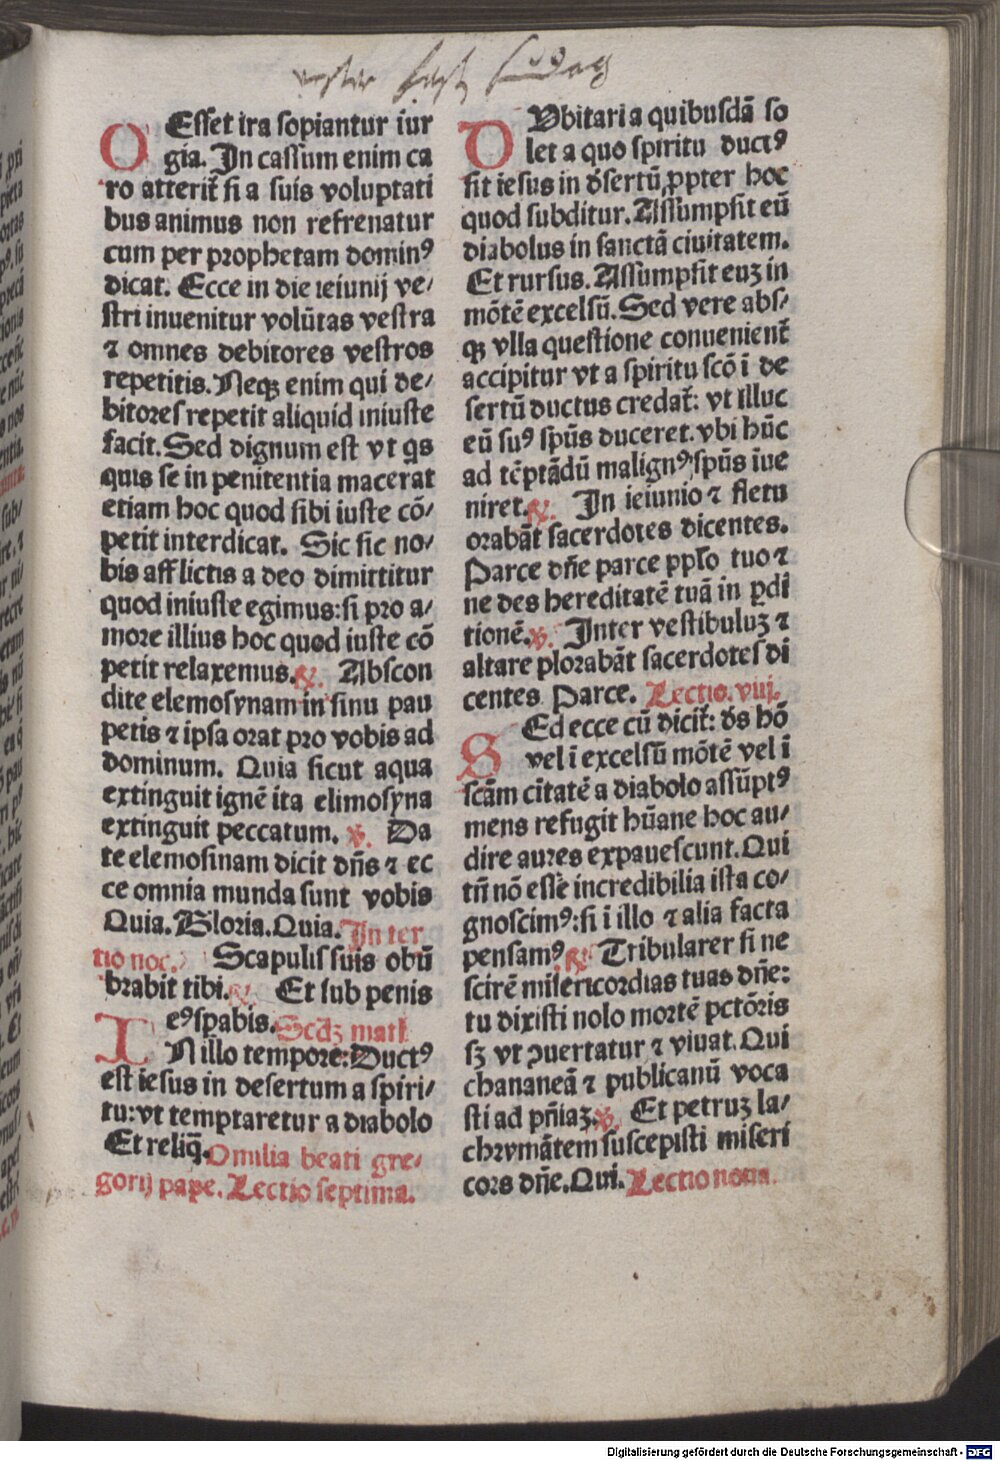 O Esset ira sopiantur iur
gia. In cassum enim ca
ro atterit̃ si a suis voluptati
bus animus non refrenatur
cum per prophetam dominꝰ
dicat. Ecce in die ieiunij ve⸗
ſtri inuenitur volūtas veſtra
⁊ omnes debitores veſtros
repetitis. Neqꝫ enim qui de⸗
bitoreſ repetit aliquid iniuſte
facit. Sed dignum eſt vt qs
quis ſe in penitentia macerat
etiam hoc quod ſibi iuſte cō⸗
petit interdicat. Sic ſic no⸗
bis afflictis a deo dimittitur
quod iniuſte egimus: ſi pro a⸗
more illius hoc quod iuſte cō
petit relaxemus. ℟. Abſcon
dite elemoſynam in ſinu pau
peris ⁊ ipſa orat pro vobis ad
dominum. Quia ſicut aqua
extinguit ignē ita elimoſyna
extinguit peccatum. ℣. Da
te elemoſinam dicit dn̄s ⁊ ec
ce omnia munda ſunt vobis
Quia. Gloria. Quia. In ter
tio noc. Scapuliſ ſuis obū
brabit tibi. ℟. Et ſub penis
eꝰ ſpabis. Scd̄ꝫ matħ
IN illo tempore: Ductꝰ
eſt ieſus in deſertum a ſpiri⸗
tu: vt temptaretur a diabolo
Et reliq̄. Omilia beati gre⸗
gorij pape. Lectio ſeptima.
DVbitari a quibuſdā ſo
let a quo ſpiritu ductꝰ
ſit ieſus in d̄ſertū ꝓpter hoc
quod ſubditur. Aſſumpſit eū
diabolus in ſanctā ciuitatem.
Et rurſus. Aſſumpſit euꝫ in
mōtē excelſū. Sed vere abſ⸗
qꝫ vlla queſtione conuenient̃
accipitur vt a ſpiritu ſcō ī de
ſertū ductus credat̃: vt illuc
eū ſuꝰ ſpūs duceret. vbi hūc
ad tēptādū malignꝰ ſpūs īue
niret. ℟. In ieiunio ⁊ fletu
orabāt ſacerdotes dicentes.
Parce dn̄e parce pplo tuo ⁊
ne des hereditatē tuā in ꝑdi
tionē. ℣. Inter veſtibuluꝫ ⁊
altare plorabāt ſacerdoteſ di
centes Parce. Lectio. viij.
SEd ecce cū dicit̃: d̄s hō
vel ī excelſū mōtē vel ī
ſcām citatē a diabolo aſſūptꝰ
mens refugit hūane hoc au⸗
dire aures expaueſcunt. Qui
tn̄ nō eſſe incredibilia iſta co⸗
gnoſcimꝰ: ſi ī illo ⁊ alia facta
penſamꝰ. ℟. Tribularer ſi ne
ſcirē miſericordias tuas dn̄e:
tu dixiſti nolo mortē pctōris
ſꝫ vt ↄuertatur ⁊ viuat. Qui
chananeā ⁊ publicanū voca
ſti ad pn̄iaꝫ ℣. Et petruꝫ la⸗
chrymātem ſuſcepiſti miſeri
cors dn̄e. Qui. Lectio nona.
Digitalisierung gefördert durch die Deutsche Forschungsgemeinschaft - DFG